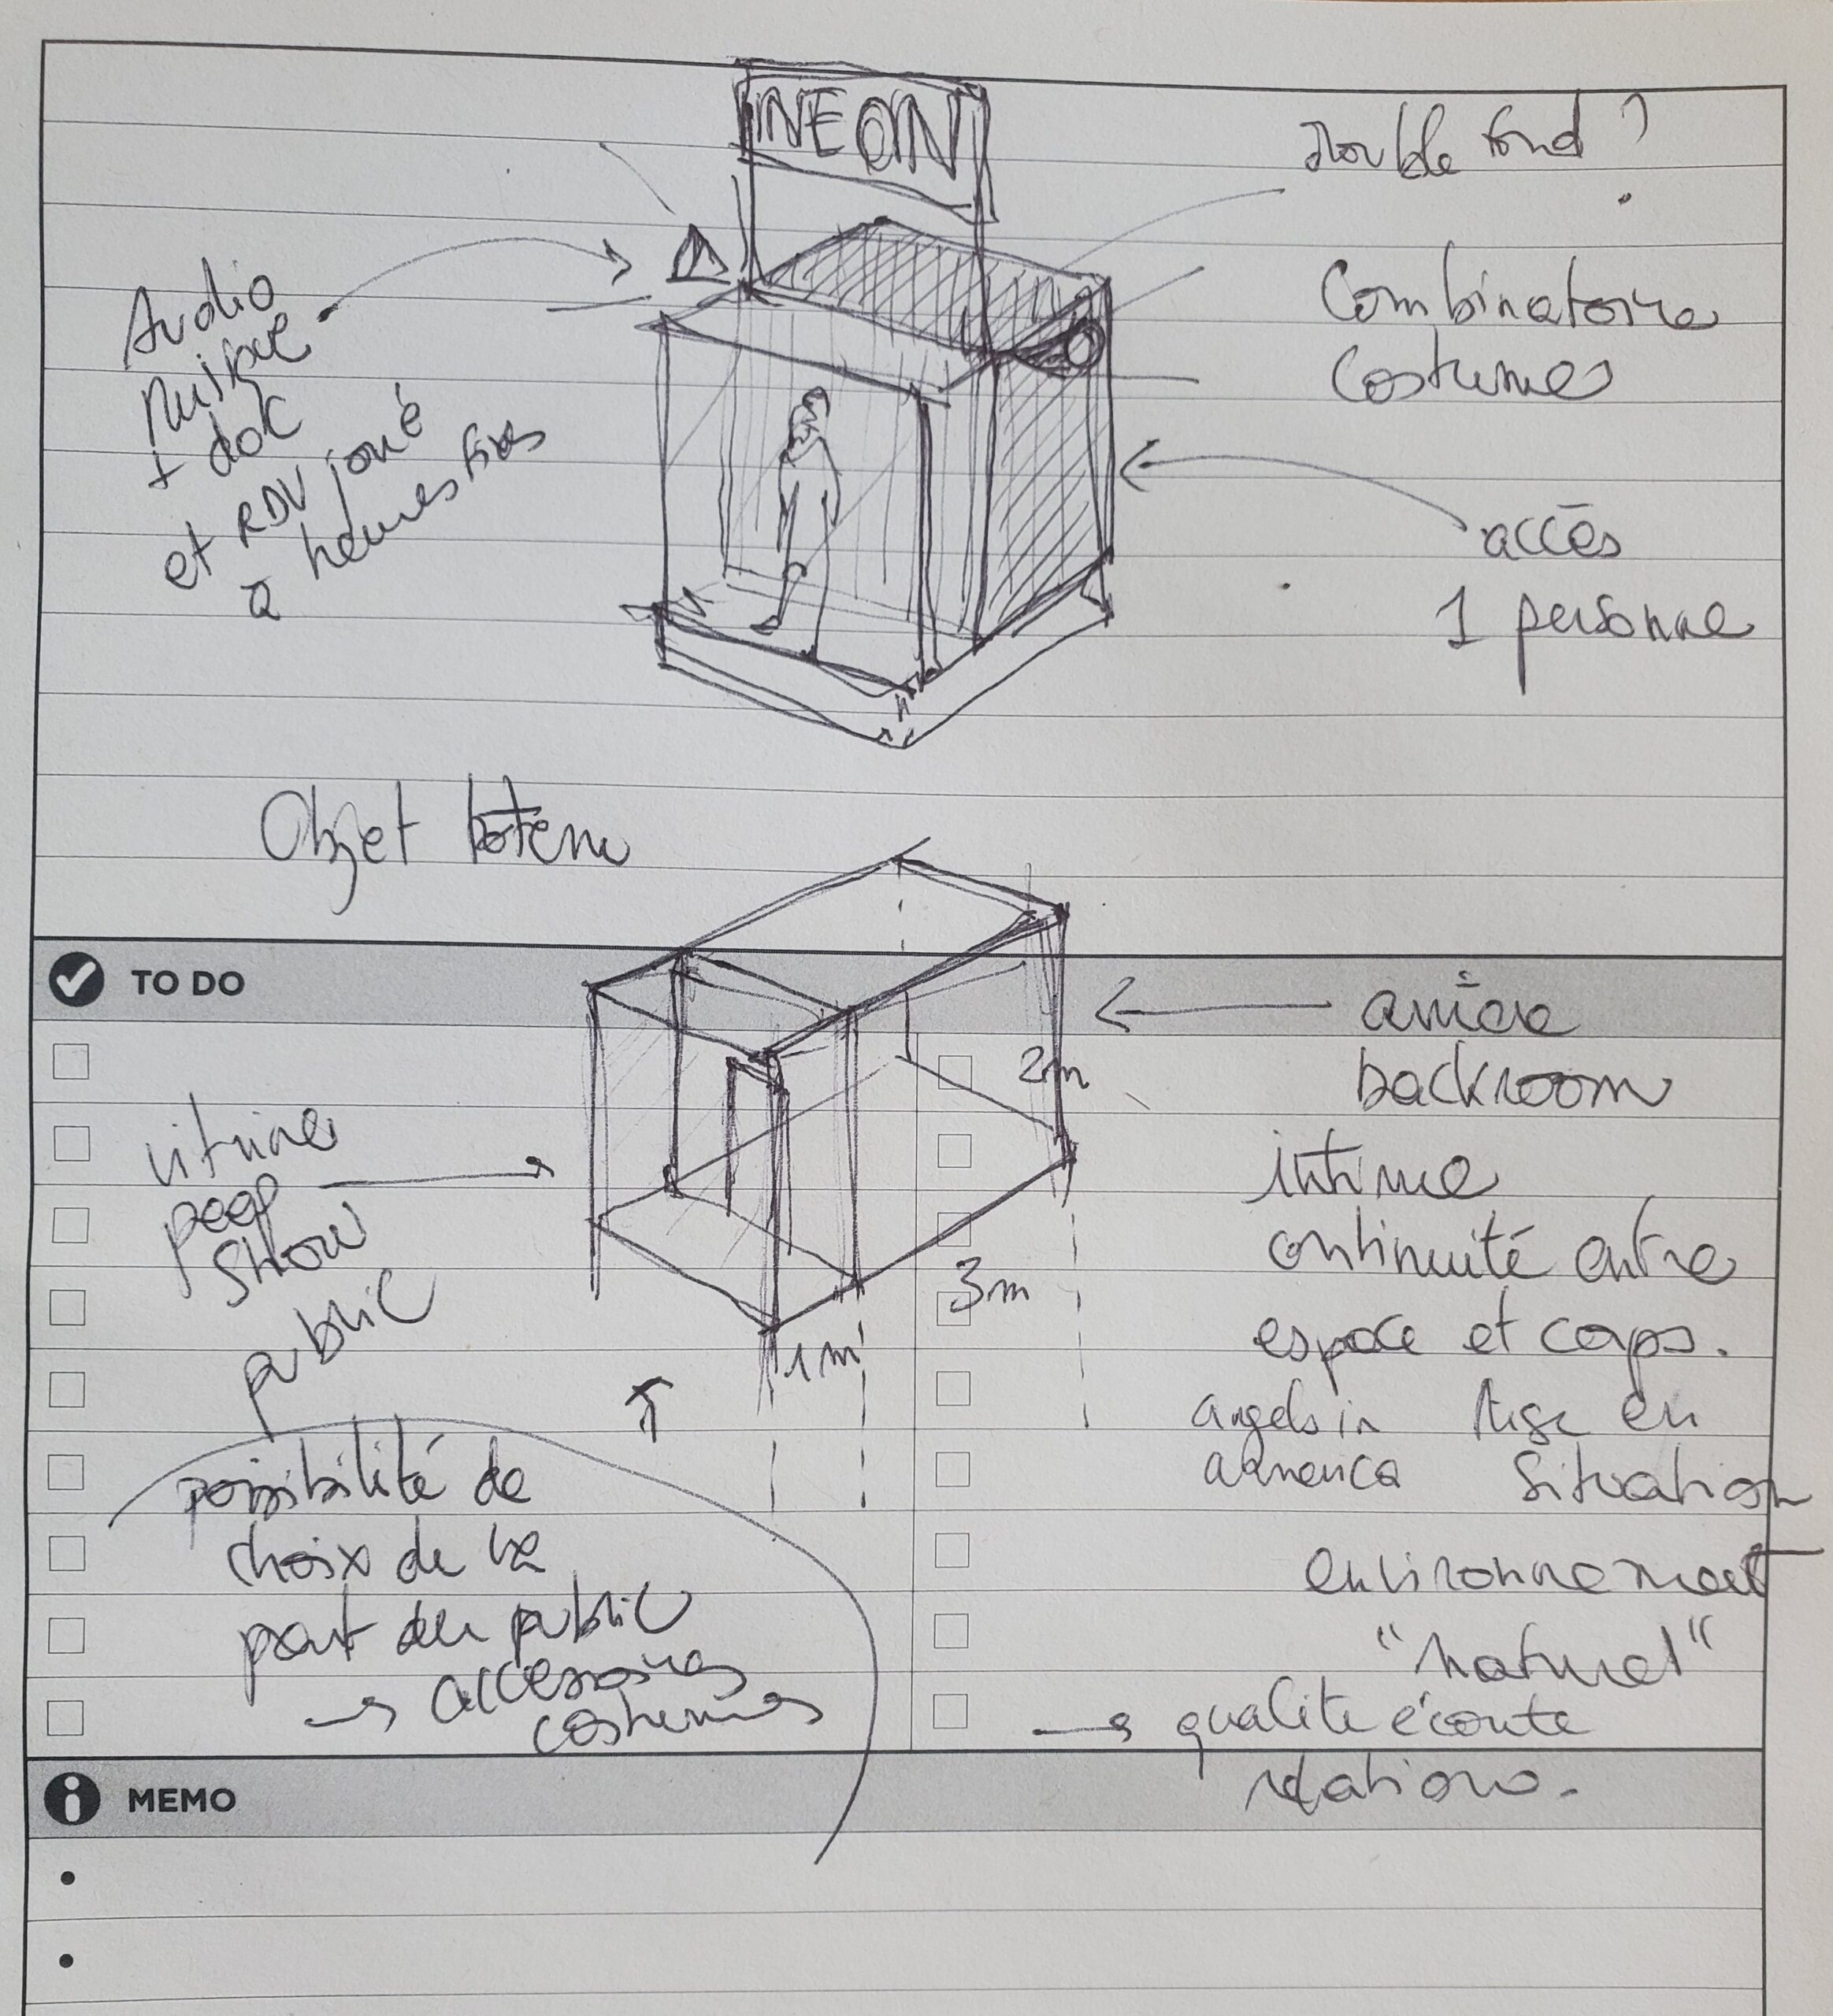 NEON
Double fond ?
Audio
Musique
+ doc
et RDV joué
à heures fixes
Combinatoire
costumes
accès
1 personne
Objet totem
TO DO
arrière
backroom
2m
vitrine
peep
show
public
intime
continuité entre
espace et corps.
3m
1m
angels in
america
Mise en
situation
possibilité de
choix de la
part du public
→ accessoires
costumes
environnement
"naturel"
→ qualité écoute
relations.
MEMO